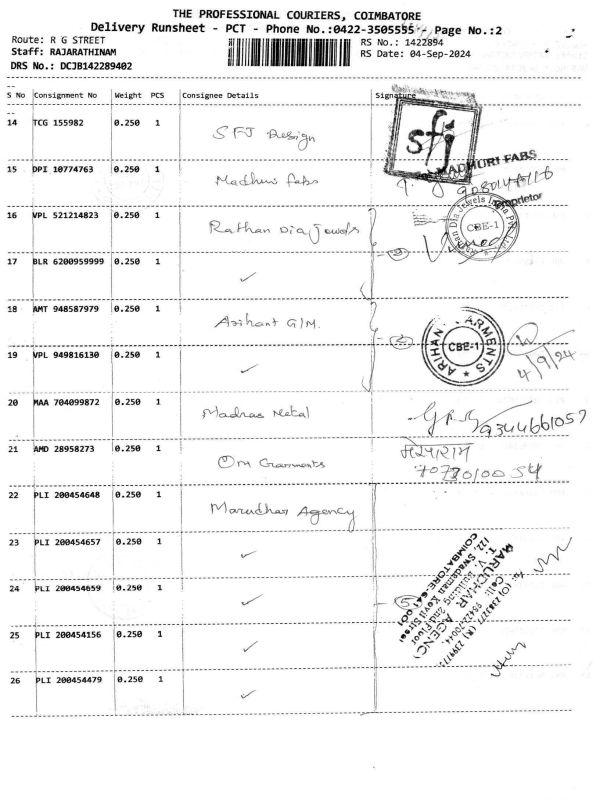 THE PROFESSIONAL COURIERS, COIMBATORE
Delivery Runsheet - PCT - Phone No.:0422-3505555 - Page No.:2
Route: R G STREET
RS No.: 1422894
Staff: RAJARATHINAM
RS Date: 04-Sep-2024
DRS No.: DCJB142289402
S No Consignment No Weight PCS Consignee Details Signature
14 TCG 155982 0.250 1 SFJ Design
sfj
15 DPI 10774763 0.250 1 Madhuri fabs
MADHURI FABS
Proprietor
16 VPL 521214823 0.250 1 Rathan Dia Jewels
CBE-1
17 BLR 6200959999 0.250 1 ✓
18 AMT 948587979 0.250 1 Arihant G/M.
ARIHANT GARMENTS
CBE-1
4/9/24
19 VPL 949816130 0.250 1 ✓
20 MAA 704099872 0.250 1 Madras Metal
9344661057
21 AMD 28958273 0.250 1 Om Garments
22 PLI 200454648 0.250 1 Marudhar Agency
23 PLI 200454657 0.250 1 ✓
24 PLI 200454659 0.250 1 ✓
5
MARUDHAR AGENCY
T. V. Building 2nd Floor
122, Swadaman Kovil Street
COIMBATORE-641 001
25 PLI 200454156 0.250 1 ✓
26 PLI 200454479 0.250 1 ✓